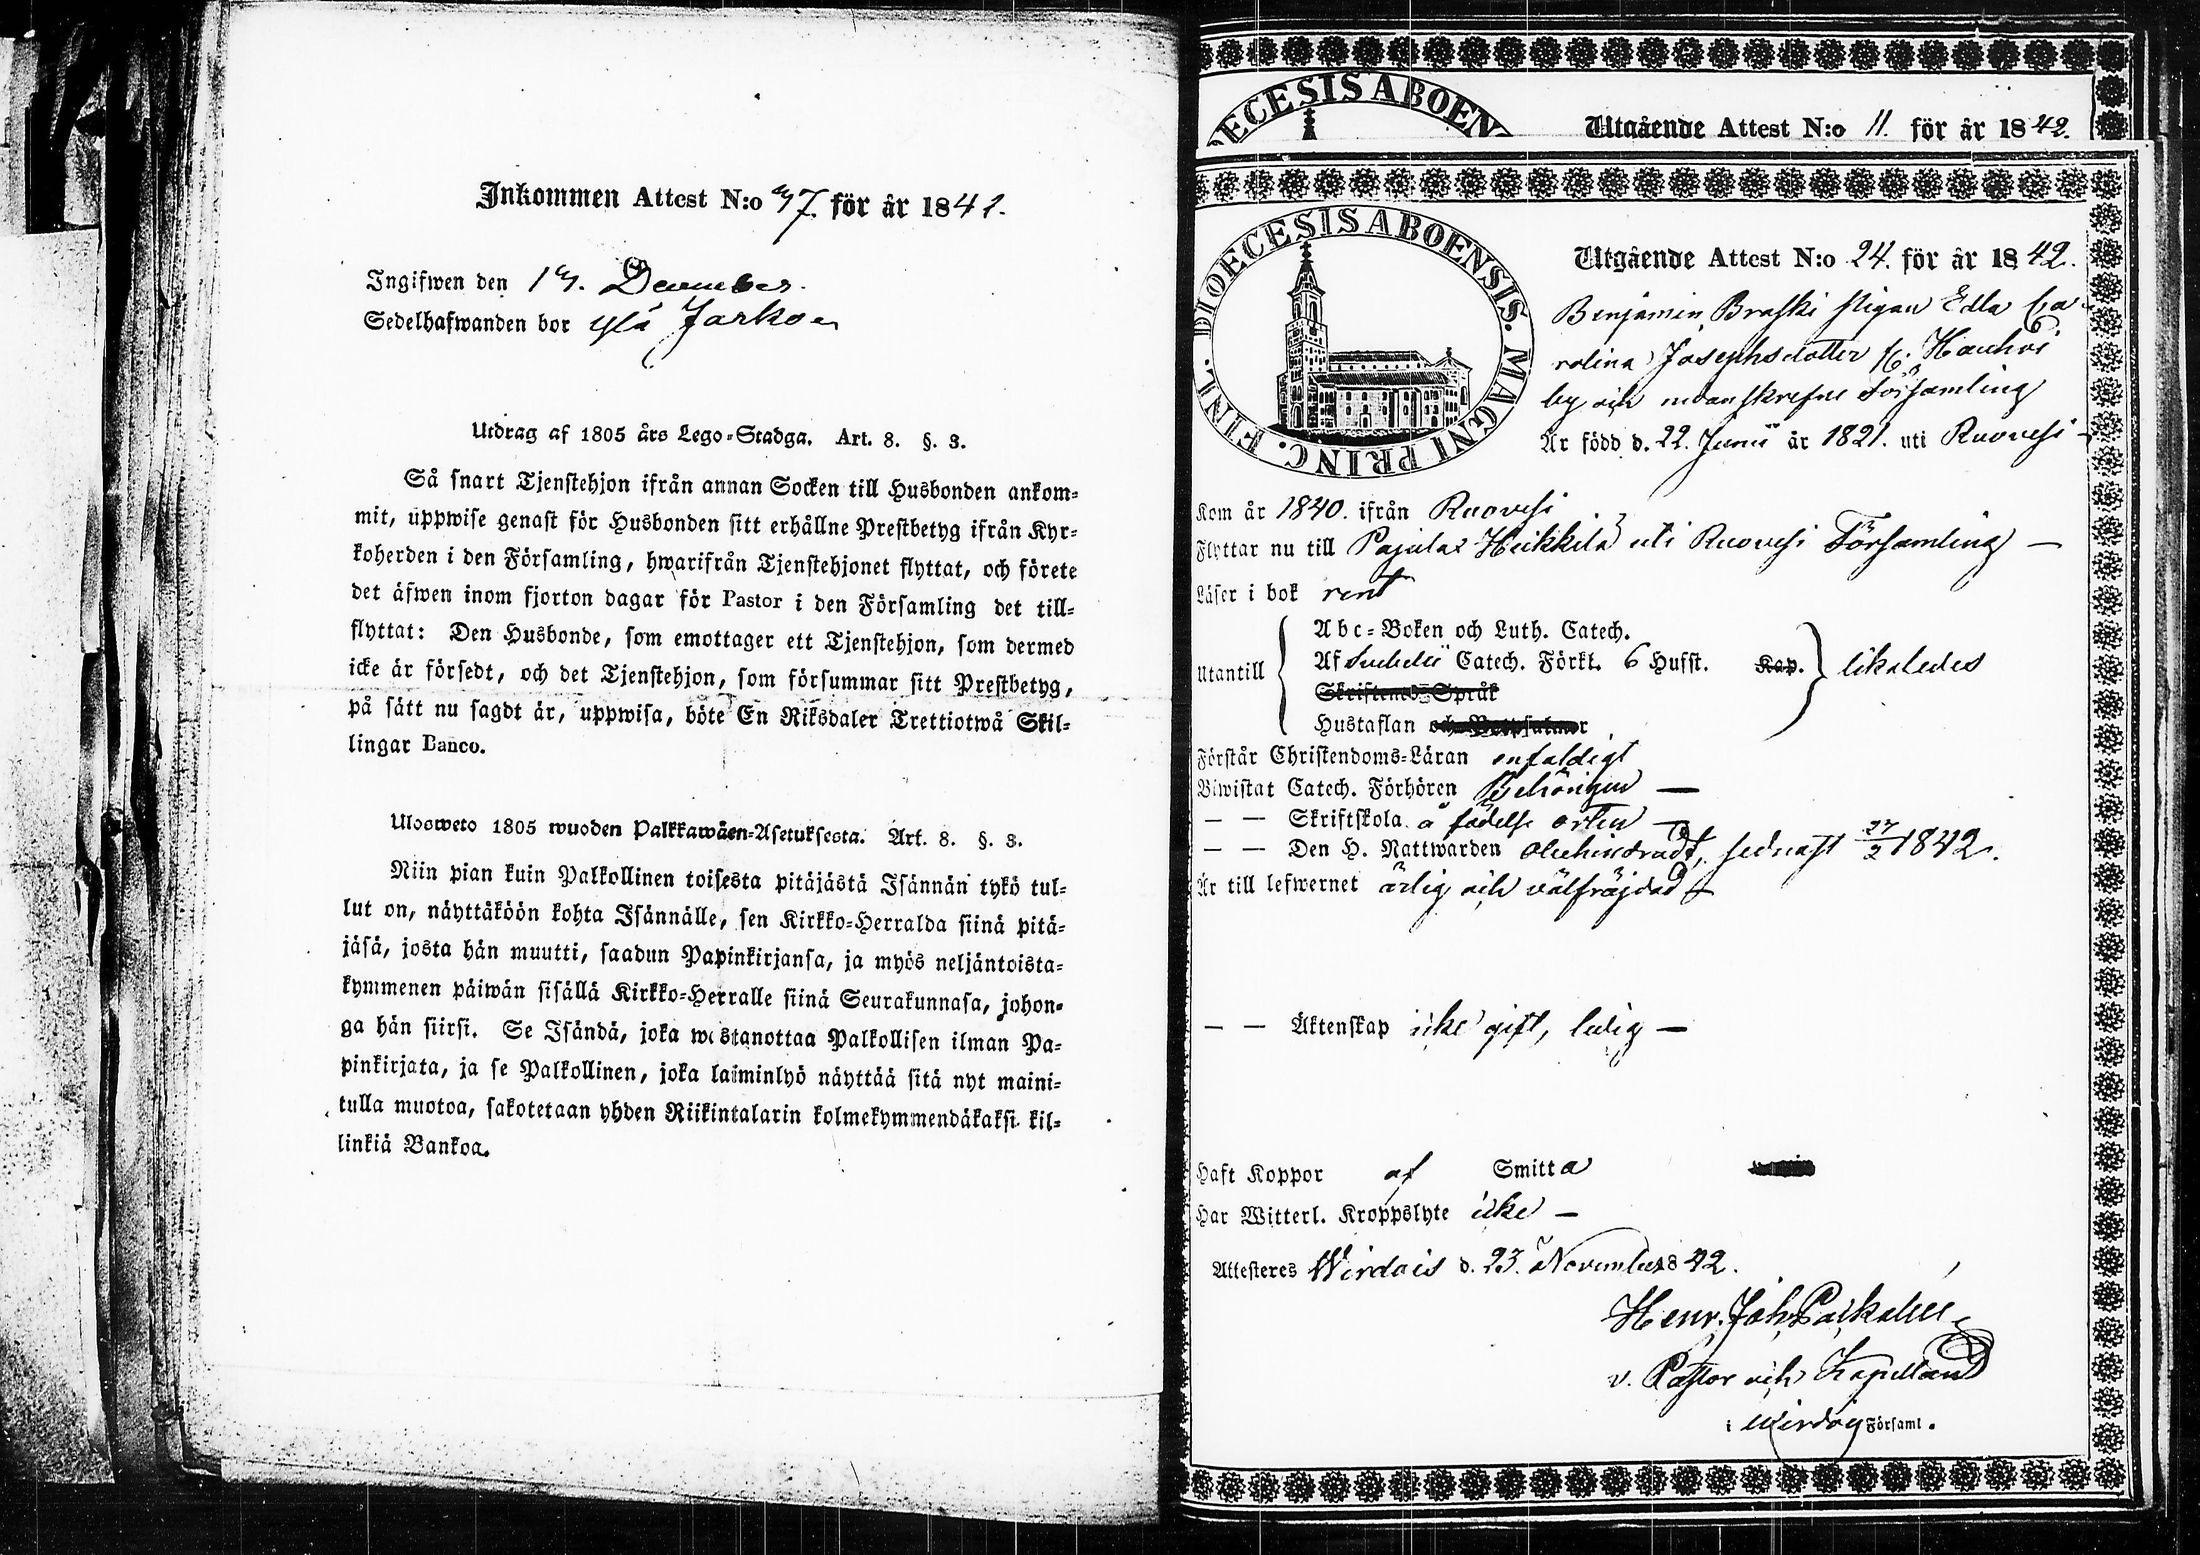 Inkommen Attest N:o 37. för år 1842.
Ingifwen den 13. December.
Sedelhafwanden bor Ylä Jarkoen
Utdrag af 1805 års Lego-Stadga. Art. 8. §. 3.
Så snart Tjenstehjon ifrån annan Socken till Husbonden ankom-
mit, uppwise genast för Husbonden sitt erhållne Prestbetyg ifrån Kyr-
koherden i den Församling, hwarifrån Tjenstehjonet flyttat, och förete
det äfwen inom fjorton dagar för Pastor i den Församling det till-
flyttat: Den Husbonde, som emottager ett Tjenstehjon, som dermed
icke är försedt, och det Tjenstehjon, som försummar sitt Prestbetyg,
på sätt nu sagdt är, uppwisa, böte En Riksdaler Trettiotwå Skil-
lingar Banco.
Ulosweto 1805 wuoden Palkkawäen-Asetuksesta. Art. 8. §. 3.
Niin pian kuin Palkollinen toisesta pitäjästä Isännän tykö tul-
lut on, näyttäköön kohta Isännälle, sen Kirkko-Herralda siinä pitä-
jäsä, josta hän muutti, saadun Papinkirjansa, ja myös neljäntoista-
kymmenen päiwän sisällä Kirkko-Herralle siinä Seurakunnasa, johon-
ga hän siirsi. Se Isändä, joka wastanottaa Palkollisen ilman Pa-
pinkirjata, ja se Palkollinen, joka laiminlyö näyttää sitä nyt maini-
tulla muotoa, sakotetaan yhden Riikintalarin kolmekymmendäkaksi kil-
linkiä Bankoa.
DIOECESIS ABOEN
Utgående Attest N:o 11. för år 1842.
DIOECESIS ABOENSIS. MAGNI PRINC. FINL.
Utgående Attest N:o 24. för år 1842.
Benjamin Braski pigan Edla Ca-
rolina Josephsdotter fr. Hauhois
by och ofvanskrefne Församling
Är född d. 22. Junii år 1821. uti Ruovesi
Kom år 1840. ifrån Ruovesi
Flyttar nu till Pajulax Heikkilä uti Ruovesi Församling —
Läser i bok rent
Utantill
Abc-Boken och Luth. Catech.
Af Svebelii Catech. Förkl. 6 Hufst. Kap.
Skriftenes-Språk
Hustaflan och Botpsalmer
likaledes
Förstår Christendoms-Läran enfaldigt
Biwistat Catech. Förhören Behörigen —
— — Skriftskola å födelse orten —
— — Den H. Nattwarden oberhindradt, sednast 27/2 1842.
Är till lefwernet ärlig och välfräjdad —
— — Äktenskap icke gift, ledig —
Haft Koppor af Smitta
Har Witterl. Kroppslyte icke —
Attesteres Wirdois d. 23. November 1842.
Henr. Joh.
v. Pastor och Kapellan
i Wirdois Församl.